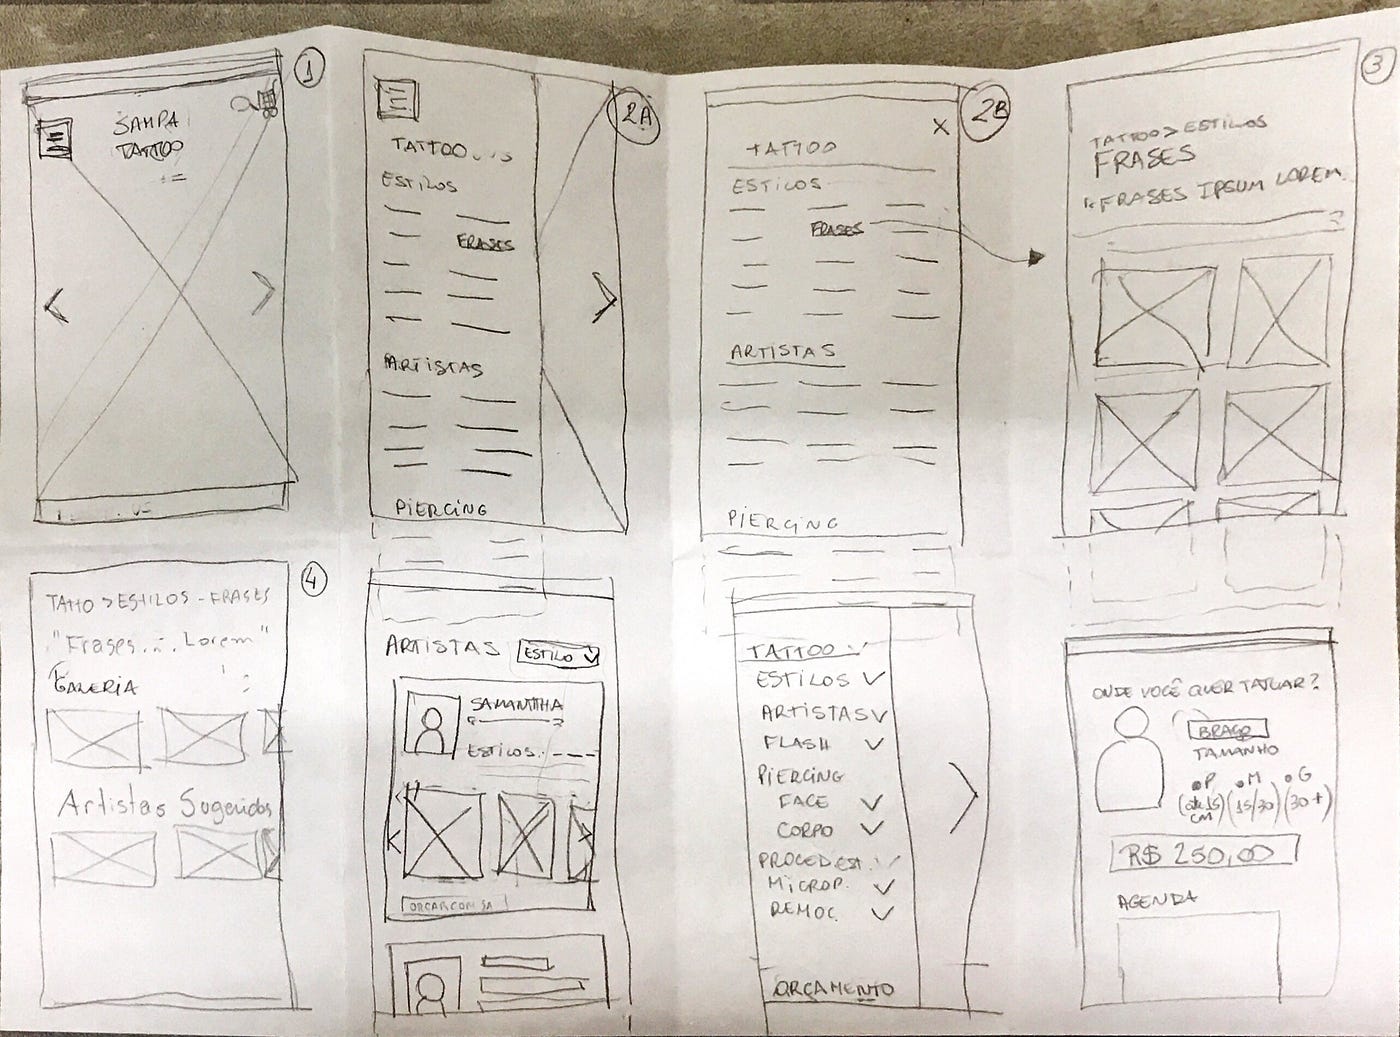 1
SAMPA
TATTOO
2A
TATTOO
ESTILOS
FRASES
ARTISTAS
PIERCING
2B
X
TATTOO
ESTILOS
FRASES
ARTISTAS
PIERCING
3
TATTOO > ESTILOS
FRASES
FRASES IPSUM LOREM
4
TATTO > ESTILOS - FRASES
"Frases... Lorem"
GALERIA
Artistas Sugeridos
ARTISTAS
ESTILO
SAMANTHA
ESTILOS:
TATTOO
ESTILOS
ARTISTAS
FLASH
PIERCING
FACE
CORPO
PROCED. EST.
MICROP.
REMOC.
ORÇAMENTO
ONDE VOCÊ QUER TATUAR?
BRAÇO
TAMANHO
P M G
(até 15 cm) (15/30) (30+)
R$ 250,00
AGENDA